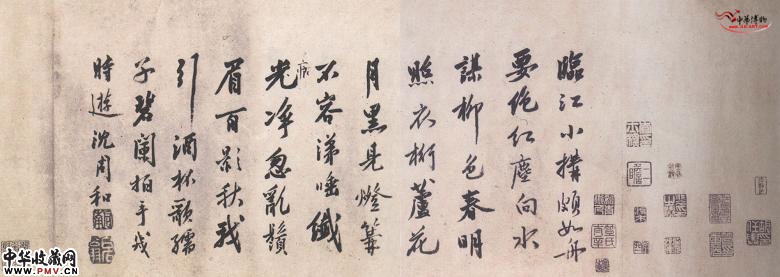 臨江小搆頗如舟
要絶紅塵向水
謀柳色春明
照衣桁蘆花
月黑見燈篝
不容涕唾纖
痕
光淨忽亂鬚
眉百影秋我
引酒杯歌孺
子碧闌拍手
時遊沈周和
中华博物
中华收藏网
WWW.PMV.CN